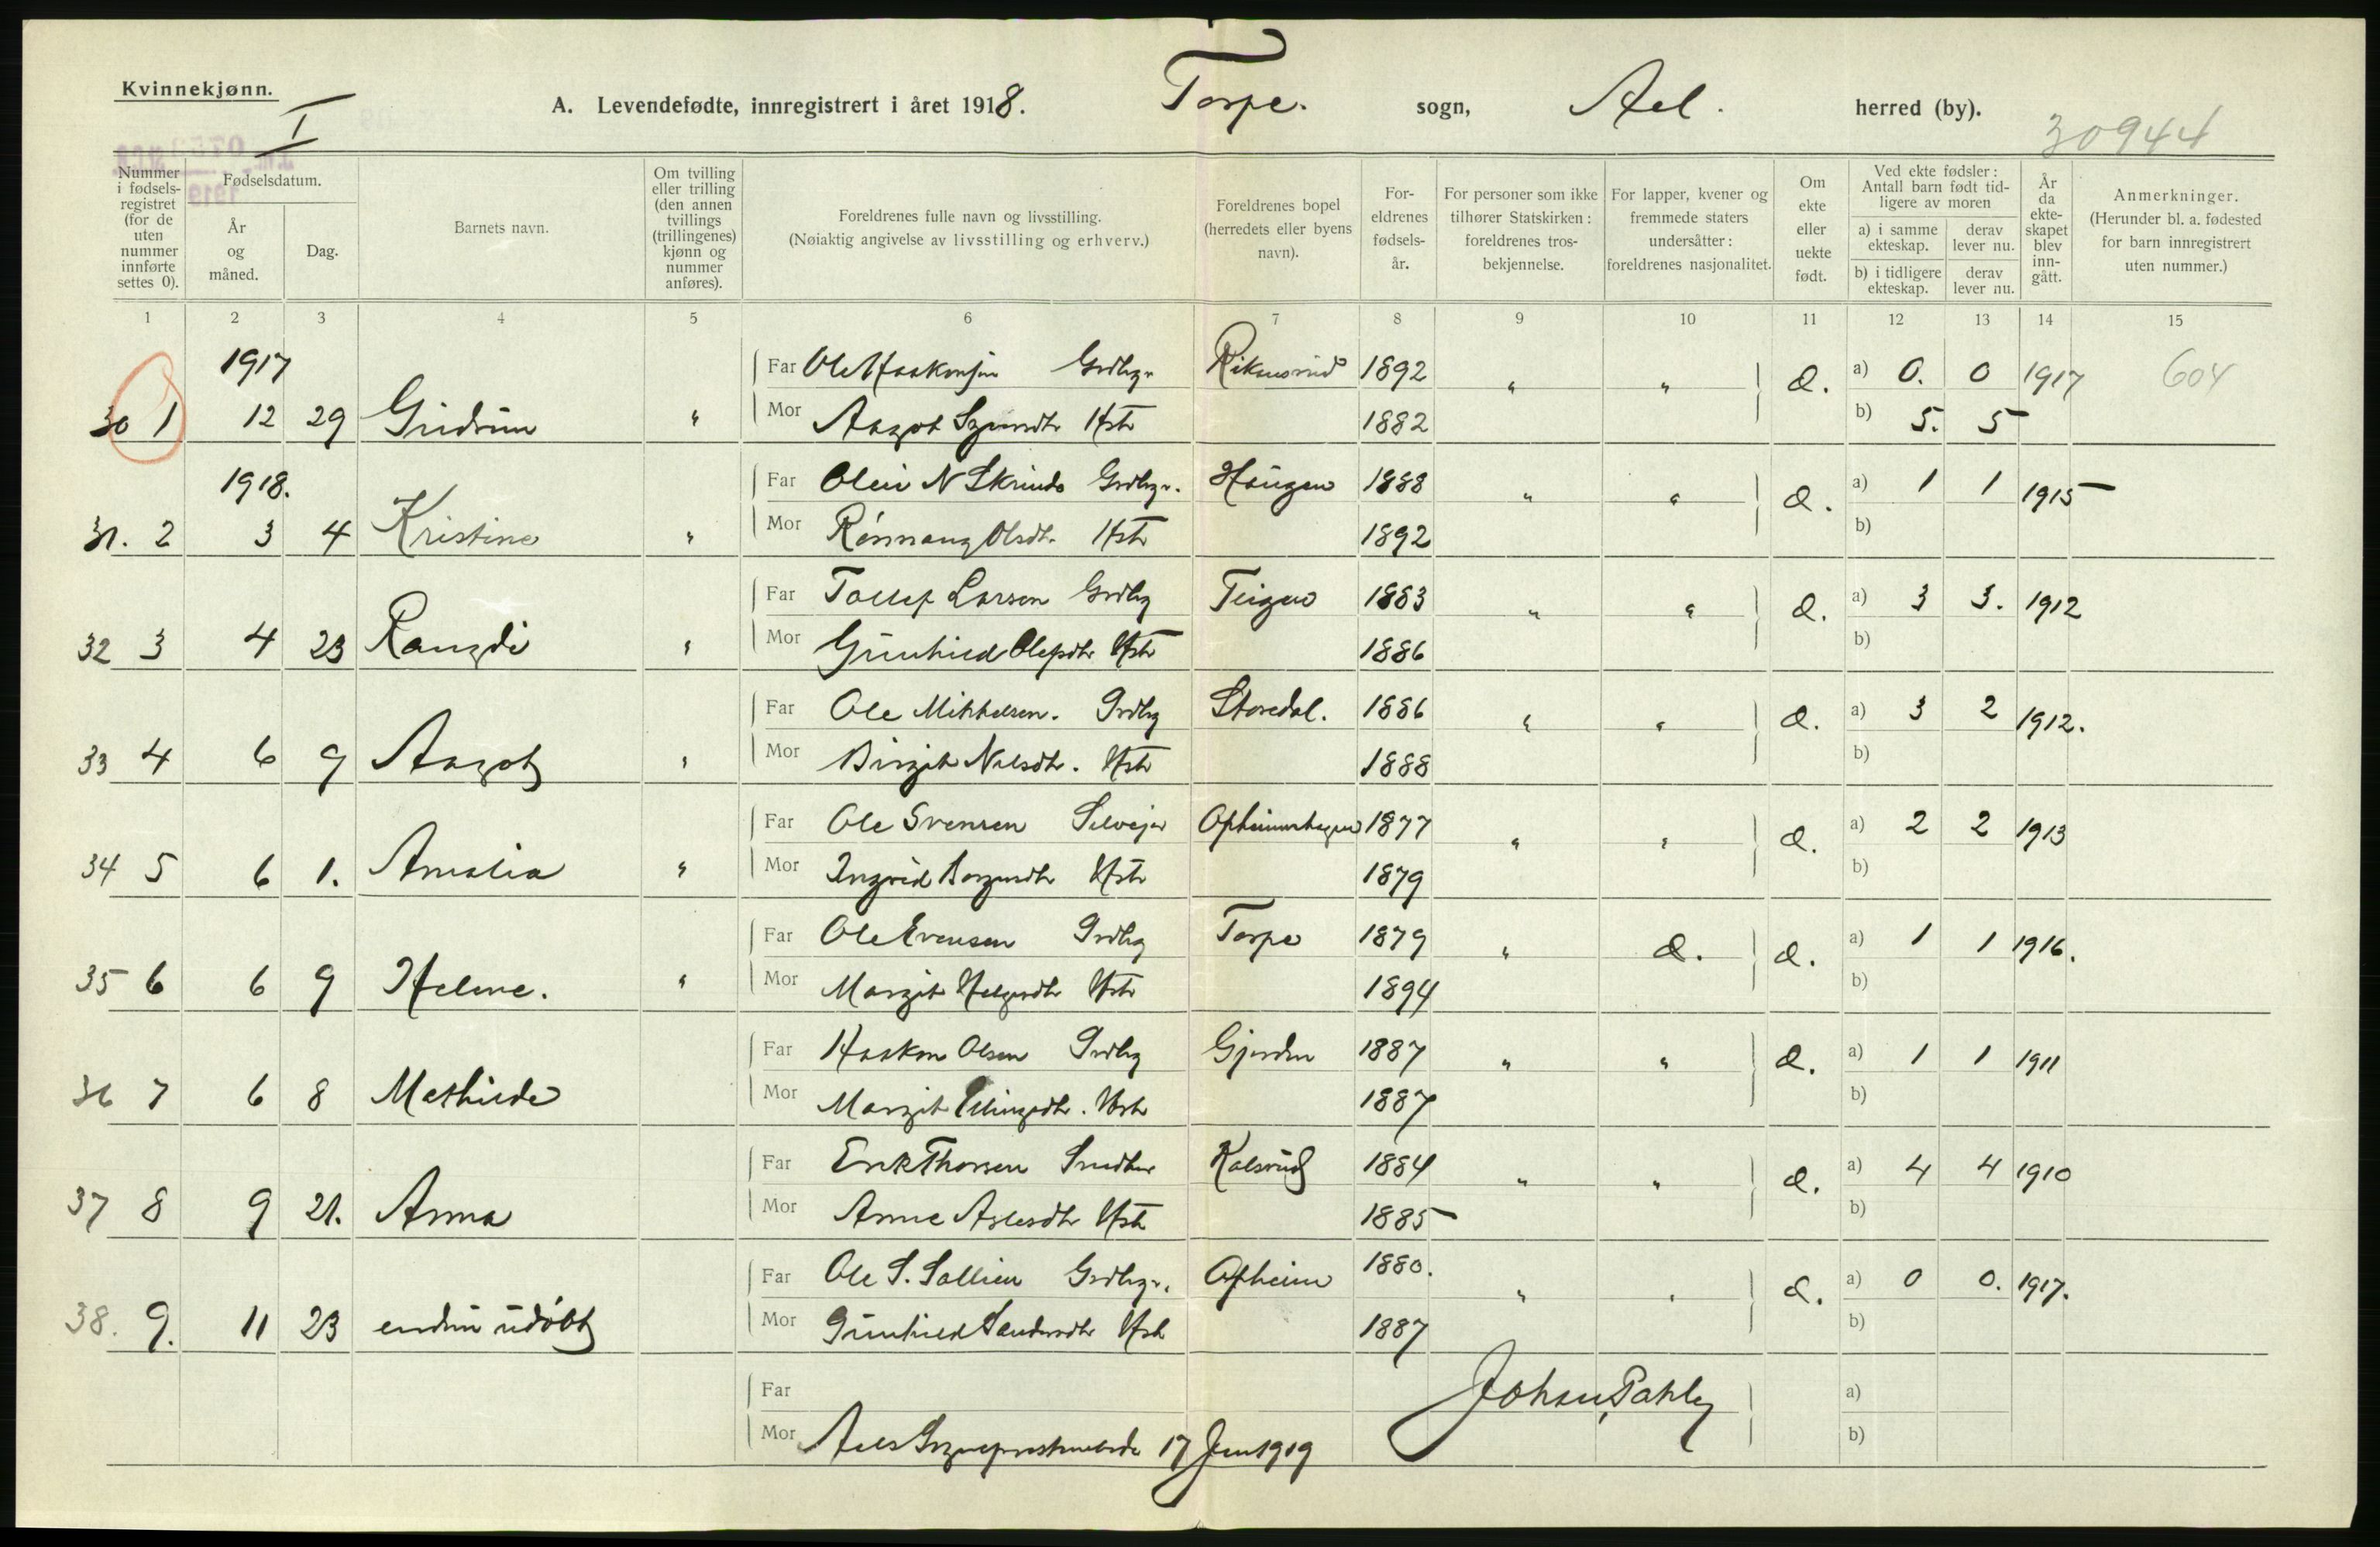 Kvinnekjønn.
I
A. Levendefødte, innregistrert i året 1918. Torpe. sogn, Aal. herred (by).
30944
Nummer i fødsels-registret (for de uten nummer innførte settes 0).
Fødselsdatum.
År og måned.
Dag.
Barnets navn.
Om tvilling eller trilling (den annen tvillings (trillingenes) kjønn og nummer anføres).
Foreldrenes fulle navn og livsstilling.
(Nøiaktig angivelse av livsstilling og erhverv.)
Foreldrenes bopel (herredets eller byens navn).
For-eldrenes fødsels-år.
For personer som ikke tilhører Statskirken: foreldrenes tros-bekjennelse.
For lapper, kvener og fremmede staters undersåtter: foreldrenes nasjonalitet.
Om ekte eller uekte født.
Ved ekte fødsler: Antall barn født tid-ligere av moren
a) i samme ekteskap.
derav lever nu.
b) i tidligere ekteskap.
derav lever nu.
År da ekte-skapet blev inn-gått.
Anmerkninger.
(Herunder bl. a. fødested for barn innregistrert uten nummer.)
1 2 3 4 5 6 7 8 9 10 11 12 13 14 15
1917 Far Ole Haakonsen Grdbgr. 1892 " " Æ. a) 0. 0 1917 604
30 1 12 29 Gudrun " Mor Aagot Syversdtr Hstr 1882 b) 5. 5
1918. Far Olein N Skrindo Grdbgr. Haugen 1888 " " Æ. a) 1 1 1915
31. 2 3 4 Kristine " Mor Rønnaug Olsdtr. Hstr 1892 b)
Far Tollef Larsen Grdbg Teigen 1883 " " Æ. a) 3 3. 1912
32 3 4 23 Rangdi " Mor Gunhild Olefsdtr Hstr 1886 b)
Far Ole Mikkelsen. Grdbg Storedal. 1886 " " Æ. a) 3 2 1912.
33 4 6 9 Aagot " Mor Birgit Nilsdtr. Hstr 1888 b)
Far Ole Svensen Selvejer Opheimshagen 1877 " " Æ. a) 2 2 1913
34 5 6 1. Amalia " Mor Ingrid Hstr 1879 b)
Far Ole Evensen Grdbg Torpe 1879 " Æ. Æ. a) 1 1 1916.
35 6 6 9 Helene. " Mor Margit Helgesdtr Hstr 1894 b)
Far Haakon Olsen Grdbg Gjerden 1887 " " Æ. a) 1 1 1911
36 7 6 8 Mathilde Mor Margit Ellingsdtr. Hstr 1887 b)
Far Erik Thorsen Kalsrud 1884 " " Æ. a) 4 4 1910
37 8 9 21. Anna Mor Anne Aslesdtr Hstr 1885 b)
Far Ole S. Sallien Grdbgr. Opheim 1880. " " Æ. a) 0 0. 1917.
38. 9. 11 23 endnu udøbt Mor Gunhild Hstr 1887 b)
Far Johan Pahle a)
Mor Aals Sogneprestembede 17 Jan 1919 b)